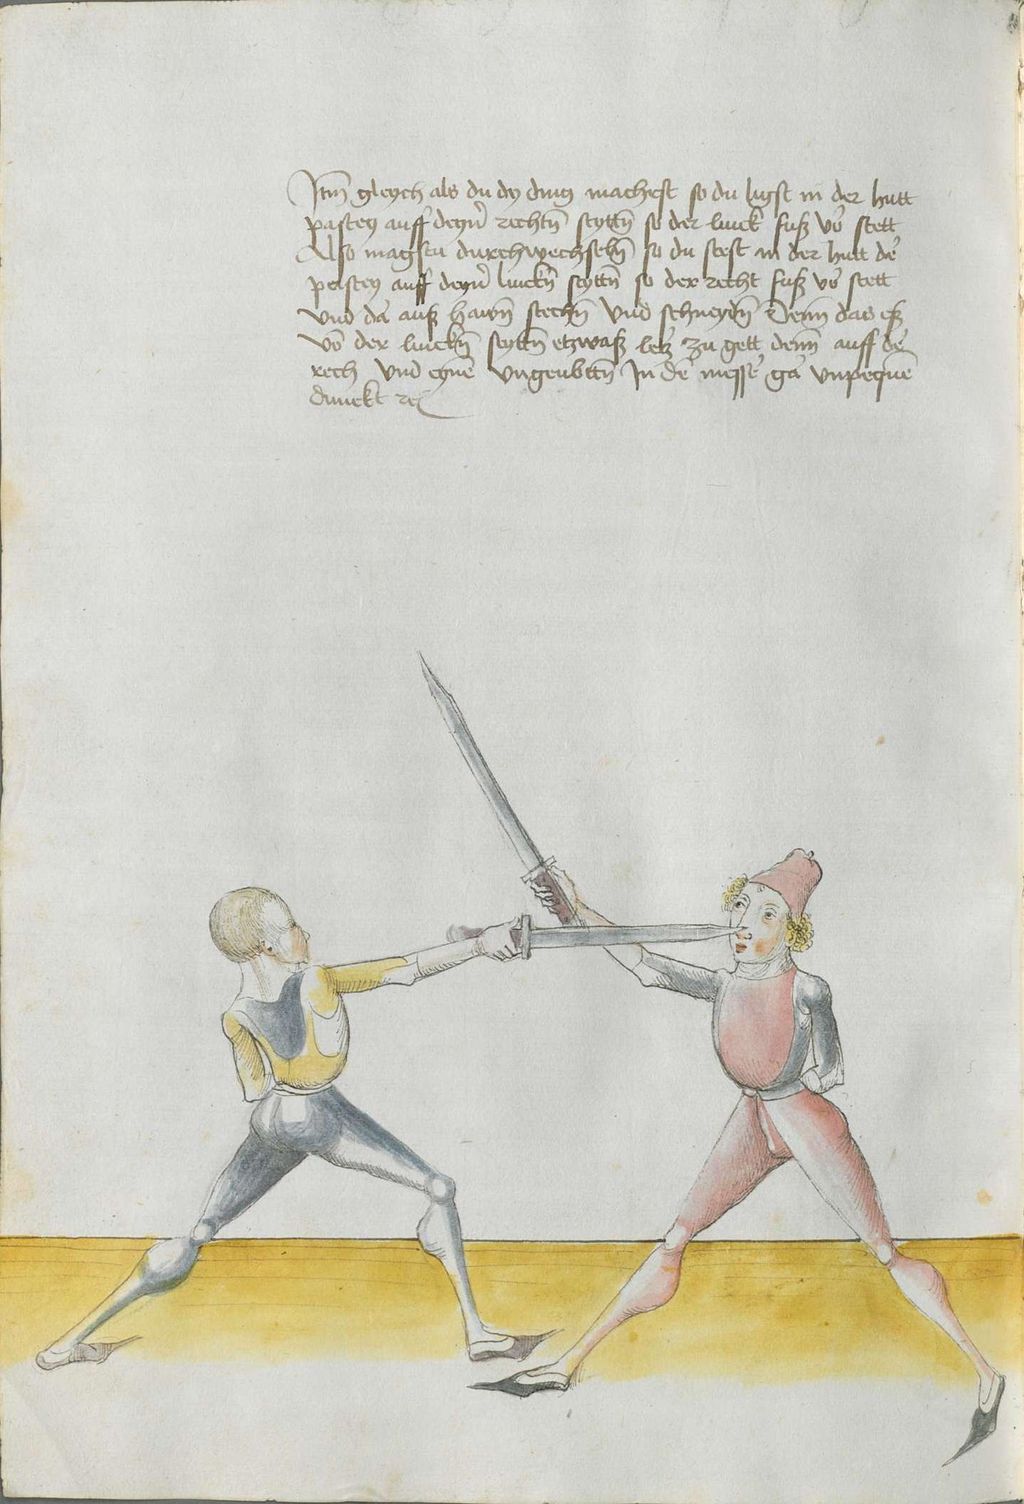 Jtm̄ gleych als du dy ding machest so du ligst in der hutt
pastey auff deyn̄ rechtn̄ seyttn̄ so der linck fuß vō stett
Also magstu durchwechseln̄ so du stest in der hutt de
pastey auff deyn̄ linckn̄ seyttn̄ so der recht fuß vō stett
vnd da auß hawn̄ stechn̄ Vnd schneydn̄ Denn das eß
vō der linckn̄ seyttn̄ etzwaß letz zu gett denn̄ auff de
rech vnd eyne vngeubttn̄ Jn de messe ga vnpeque
dunckt